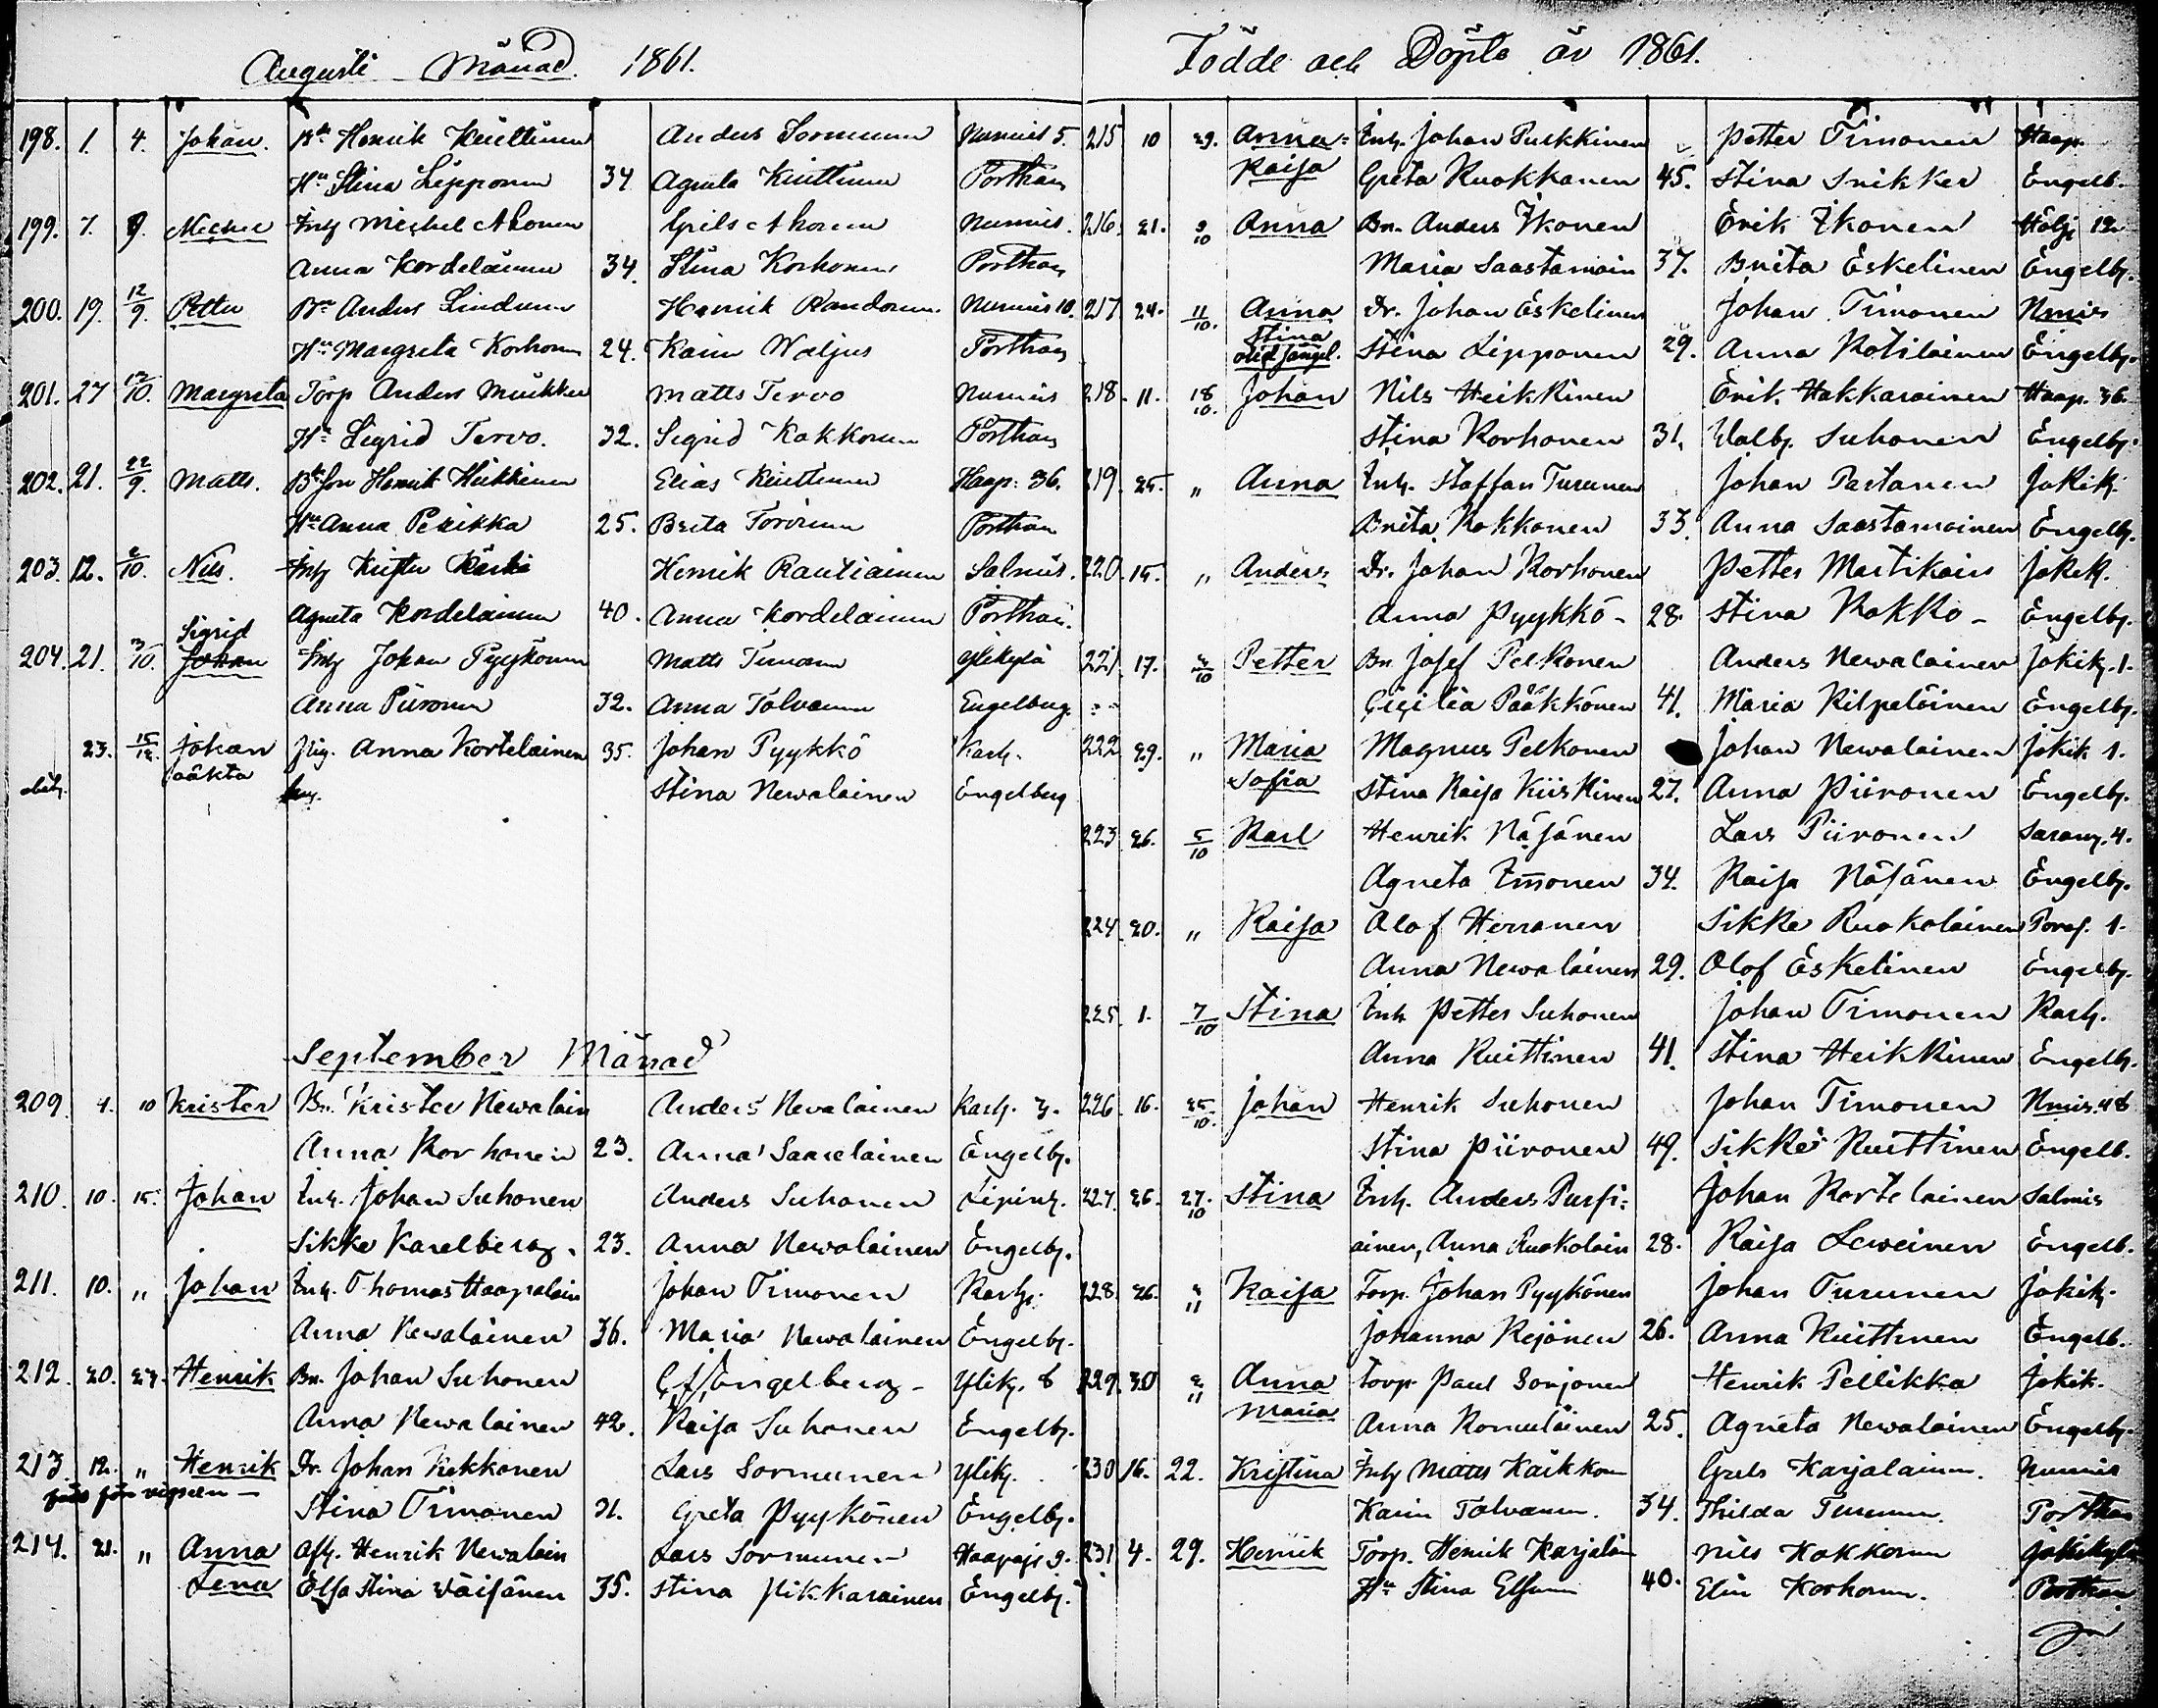 Augusti Månad. 1861.
198. 1. 4. Johan. Henrik Kuittinen Anders Sormunen Nurmis 5.
Hu Stina Lipponen 34 Agneta Kuittinen Porthan
199. 7. 9. Michel Inh Michel Ahonen Grels Ahonen Nurmis.
Anna Kordelainen 34. Stina Korhonen Porthan
200. 19. 12/9. Petter Bn Anders Henrik Nurmis 10.
Hu Margreta Korhonen 24. Karin Waljus Porthan
201. 27 /10. Margreta Torp Anders Matts Tervo Nurmis
Hu Sigrid Tervo. 32. Sigrid Kakkonen Porthan
202. 21. 22/9. Matts. Henrik Heikkinen Elias Kuittinen Haap: 36.
Hu Anna 25. Brita Toroinen Porthan
203. 12. /10. Nils. Inh Krister Kärki Henrik Rautiainen Salmis.
Agneta Kordelainen 40. Anna Kordelainen Porthan.
Sigrid
204. 21. 3/10. Johan Inh Johan Pyykönen Matts Timonen Ylikylä
Anna Piironen 32. Anna Tolvanen Engelberg.
23. 15/12. Johan Pig. Anna Kortelainen 35. Johan Pyykkö Karh.
oäkta Stina Newalainen Engelberg
September Månad
209. 4. 10 Krister Bn. Krister Newalain Anders Nevalainen Karh. 3.
Anna Korhonen 23. Anna Saarelainen Engelb.
210. 10. 15. Johan Inh. Johan Suhonen Anders Suhonen Lipink.
Sikke Karelberg. 23. Anna Newalainen Engelb.
211. 10. " Johan Inh. Thomas Haapalain Johan Timonen Karh.
Anna Newalainen 36. Maria Newalainen Engelb.
212. 20. 27. Henrik Bn. Johan Suhonen Engelberg - Ylik. 8
Anna Newalainen 42. Kaisa Suhonen Engelb.
213. 12. " Henrik Dr. Johan Kokkonen Lars Sormunen Ylik.
för vigseln - Stina Timonen 21. Greta Pyykönen Engelb.
214. 21. " Anna Afsk. Henrik Newalain Lars Sormunen Haapaj. 9.
Lena Elsa Stina Väisänen 35. Stina Pikkarainen Engelb.
Födde och Döpte år 1861.
215 10 29. Anna= Inh. Johan Purkkinen Petter Timonen Haap.
Kaisa Greta Ruokkanen 45. Stina Snikker Engelb.
216. 21. 9/10 Anna Bn. Anders Ikonen Erik Ikonen Hölj. 12.
Maria Saastamoin 37. Brita Eskelinen Engelb.
217 24. 11/10. Anna Dr. Johan Eskelinen Johan Timonen Nmis
Stina
Stina Lipponen 29. Anna Kotilainen Engelb.
218. 11. 18/10. Johan Nils Heikkinen Erik Hakkarainen Haap. 36.
Stina Korhonen 31. Walb. Suhonen Engelb.
219. 25. " Anna Inh. Staffan Turunen Johan Partanen Jokik.
Brita Kokkonen 33. Anna Saastamoinen Engelb.
220. 15. " Anders Dr. Johan Korhonen Petter Martikain Jokik.
Anna Pyykkö - 28. Stina Kokko - Engelb.
221. 17. 4/10 Petter Bn. Josef Pelkonen Anders Newalainen Jokik. 1.
Cicilia Pääkkönen 41. Maria Kilpeläinen Engelb.
222 29. " Maria Magnus Pelkonen Johan Newalainen Jokik 1.
Sofia Stina Kaisa Kiiskinen 27. Anna Piironen Engelb.
223 26. 5/10 Karl Henrik Näsänen Lars Piironen Saram. 4.
Agneta Immonen 34. Kaisa Näsänen Engelb.
224. 20. " Kaisa Olof Herranen Sikke Ruokolainen Poras. 1.
Anna Newalainen 29. Olof Eskelinen Engelb.
225. 1. 7/10 Stina Inh Petter Suhonen Johan Timonen Karh.
Anna Kuittinen 41. Stina Heikkinen Engelb.
226. 16. 25/10. Johan Henrik Suhonen Johan Timonen Nmis. 48
Stina Piironen 49. Sikke Kuittinen Engelb.
227. 26. 27./10 Stina Inh. Anders Pursi= Johan Kortelainen Salmis
ainen, Anna Ruokolain 28. Kaisa Leweinen Engelb.
228. 26. 2/11 Kaisa Torp. Johan Pyykönen Johan Turunen Jokik.
Johanna Kejonen 26. Anna Kuittinen Engelb.
229. 30 2/11 Anna Torp. Paul Sorjonen Henrik Pellikka Jokik.
Maria Anna Komulainen 25. Agneta Newalainen Engelb.
230 16. 22. Kristina Inh Matts Kaikkon Grels Karjalainen. Nurmis
Karin Tolvanen. 34. Thilda Turunen. Porthan
231 4. 29. Henrik Torp. Henrik Karjalain Nils Kokkonen Jokikylä
Hu Stina 40. Elin Korhonen. Porthan